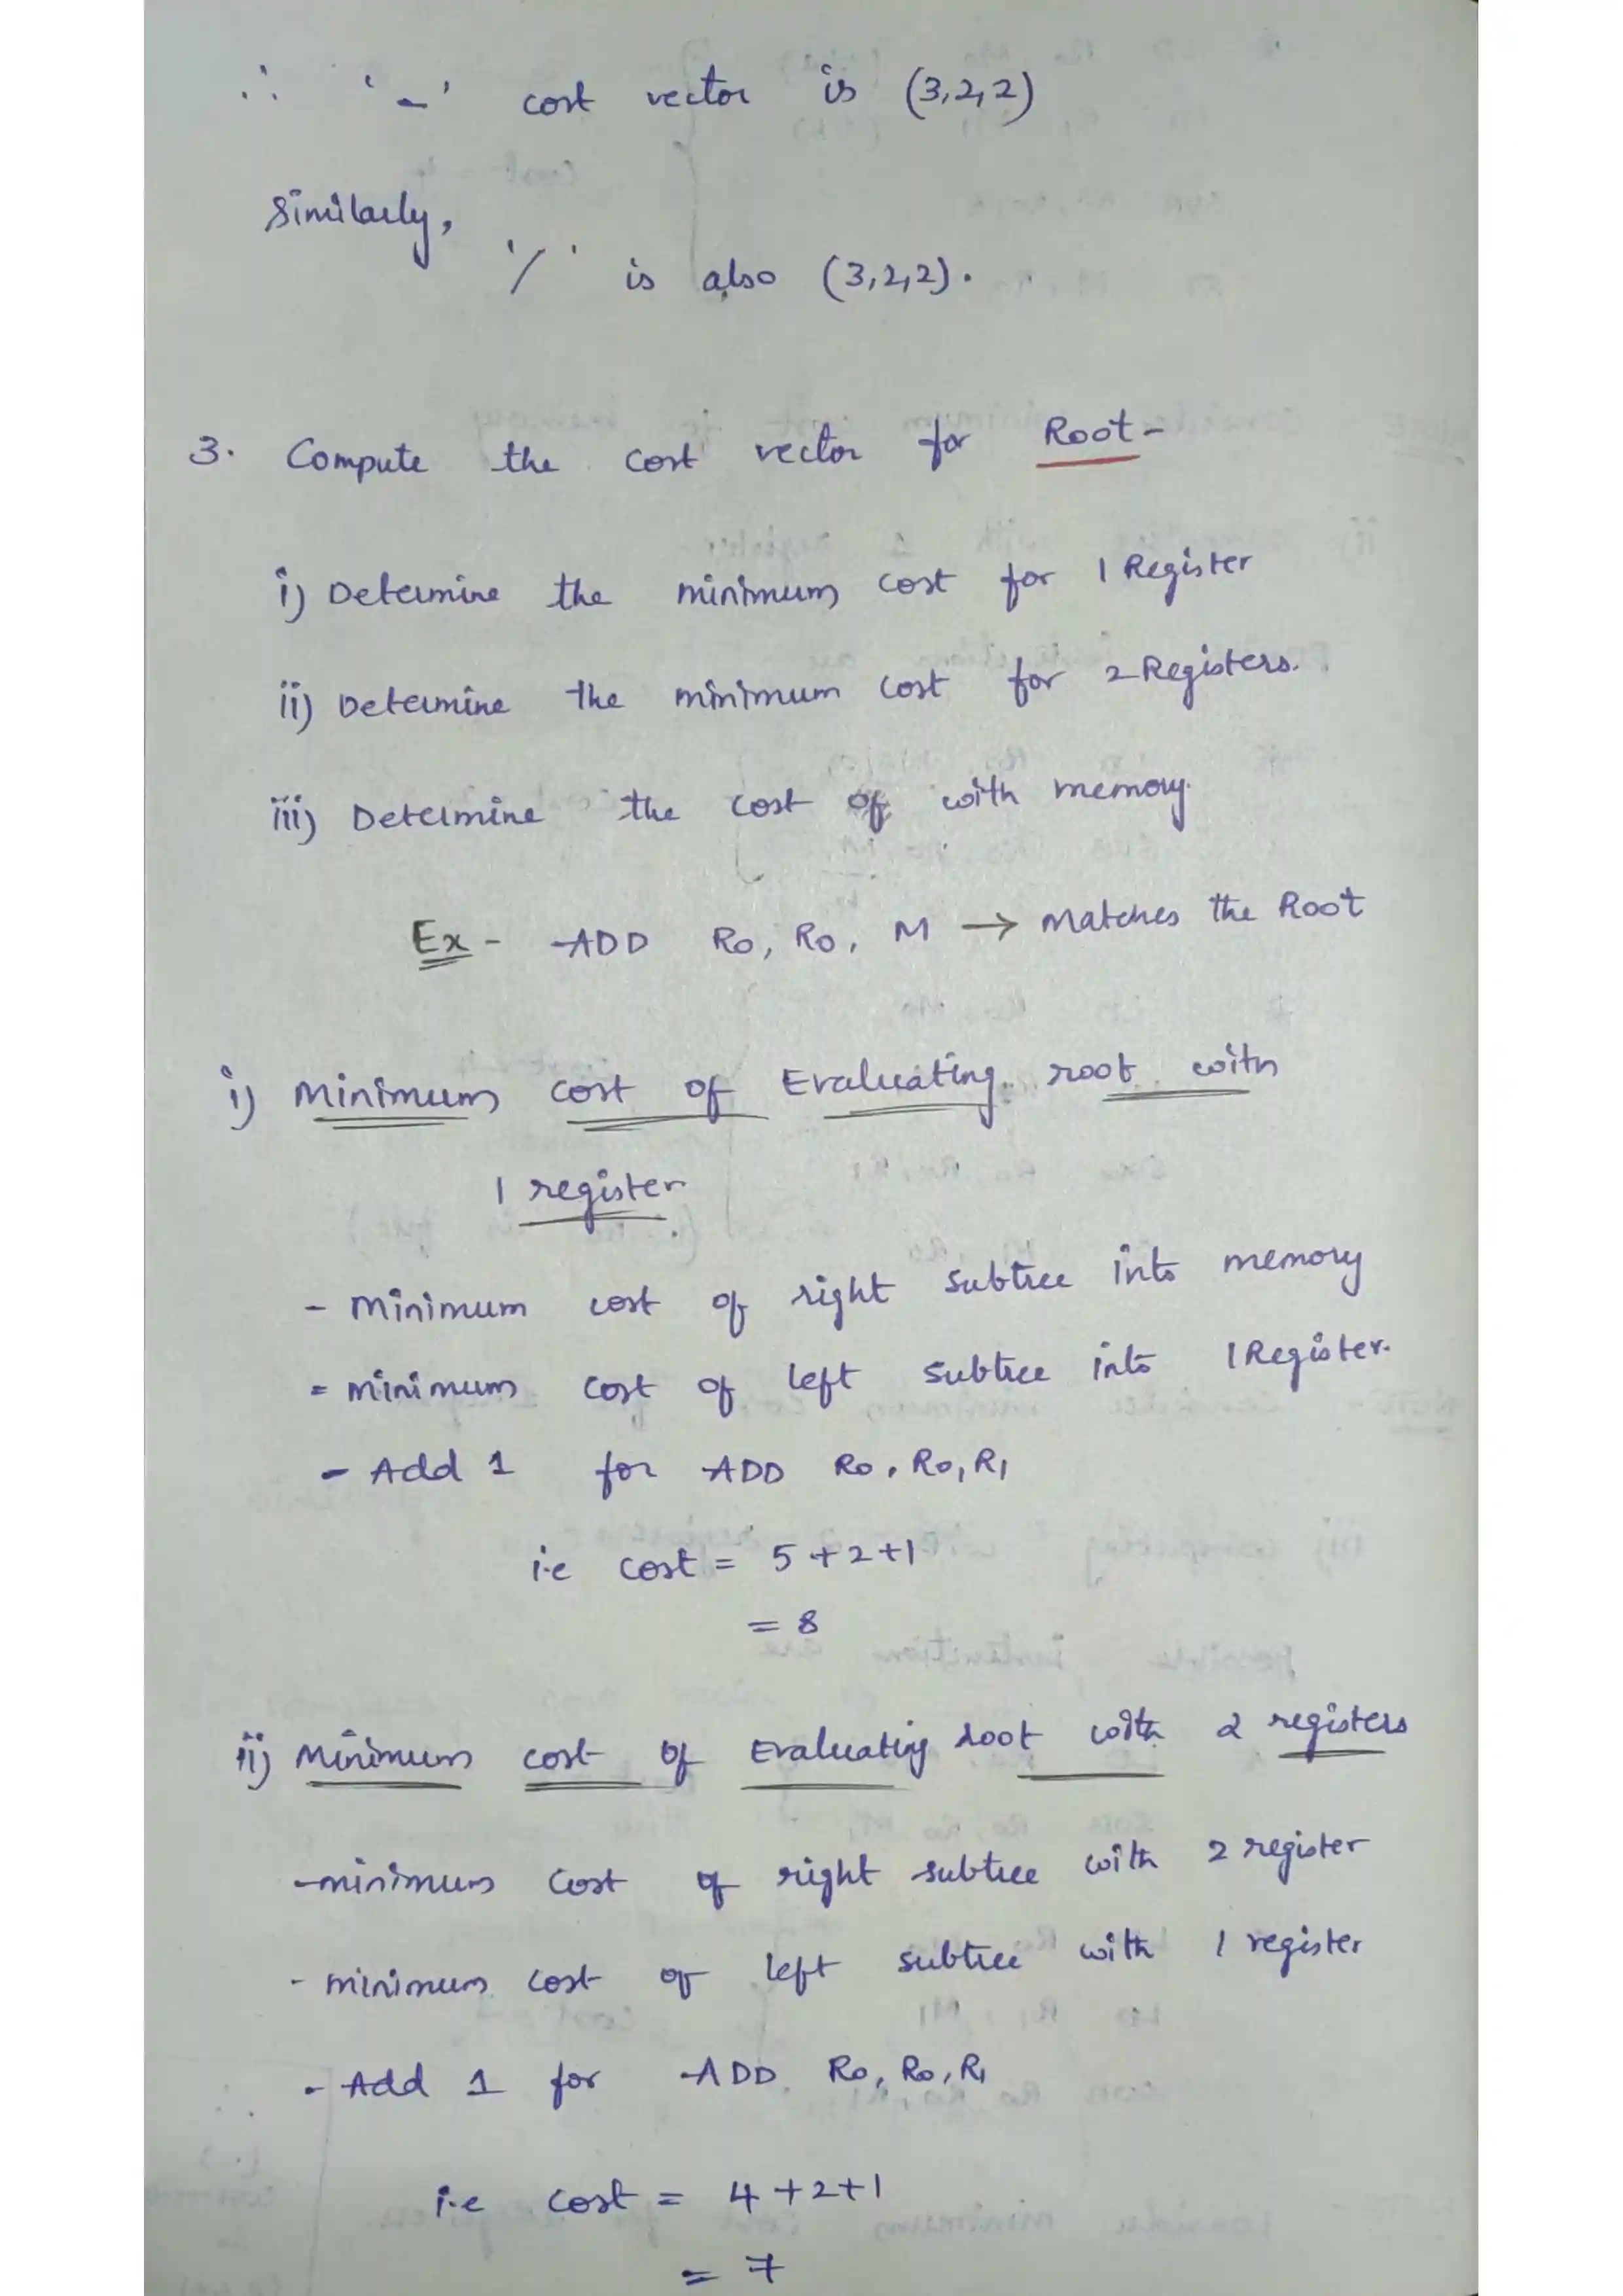 ∴ '-' cost vector is (3,2,2)
Similarly,
'/' is also (3,2,2).
3. Compute the cost vector for Root-
i) Determine the minimum cost for 1 Register
ii) Determine the minimum cost for 2 Registers.
iii) Determine the cost of with memory.
Ex - ADD R0, R0, M → Matches the Root
i) Minimum cost of Evaluating root with
1 register
- Minimum cost of right subtree into memory
= minimum cost of left subtree into 1 Register.
- Add 1 for ADD R0, R0, R1
i.e cost = 5+2+1
= 8
ii) Minimum cost of Evaluating root with 2 registers
- minimum cost of right subtree with 2 register
- minimum cost of left subtree with 1 register
- Add 1 for ADD R0, R0, R1
i.e cost = 4+2+1
= 7